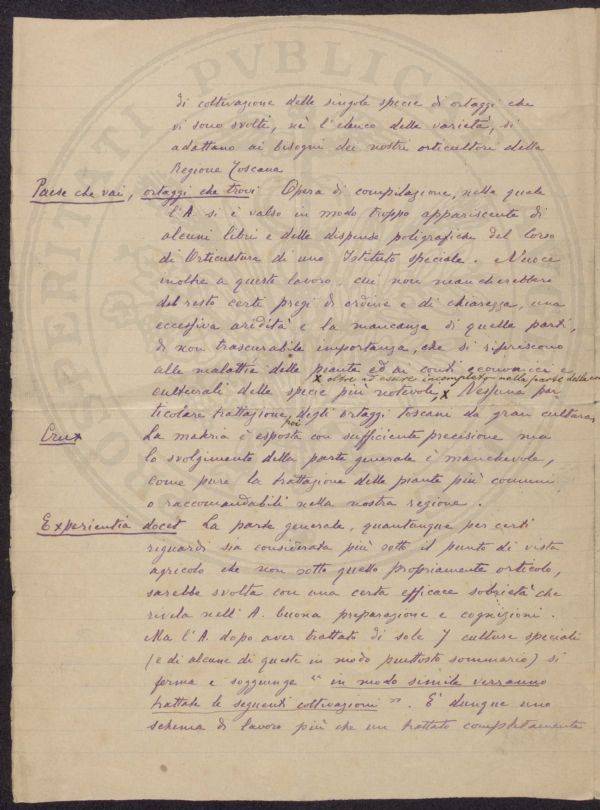 di coltivazione delle singole specie di ortaggi che
vi sono svolte, nè l'elenco delle varietà, si
adattano ai bisogni dei nostri orticultori della
Regione Toscana
Paese che vai, ortaggi che trovi Opera di compilazione, nella quale
l'A. si è valso in modo troppo appariscente di
alcuni libri e delle dispense poligrafiche del Corso
di Orticultura di uno Istituto speciale. Nuoce
inoltre a questo lavoro, cui non mancherebbero
del resto certi pregi di ordine e di chiarezza, una
eccessiva aridità e la mancanza di quelle parti,
di non trascurabile importanza, che si riferiscono
alle malattie delle piante ed ai conti economici e
x oltre ad essere incompleto nella parte della
culturali delle specie più notevole, x Nessuna par
ticolare trattazione, poi degli ortaggi toscani da gran cultura,
Crux La materia è esposta con sufficiente precisione ma
lo svolgimento della parte generale è manchevole,
come pure la trattazione delle piante più comuni
o raccomandabili nella nostra regione.
Experientia docet La parte generale, quantunque per certi
riguardi sia considerata più sotto il punto di vista
agricolo che non sotto quello propriamente orticolo,
sarebbe svolta con una certa efficace sobrietà che
rivela nell'A. buona preparazione e cognizioni.
Ma l'A. dopo aver trattato di sole 7 culture speciali
(e di alcune di queste in modo piuttosto sommario) si
ferma e soggiunge "in modo simile verranno
trattate le seguenti coltivazioni". È dunque uno
schema di lavoro più che un trattato completamente
PROSPERITATI PVBLICAE